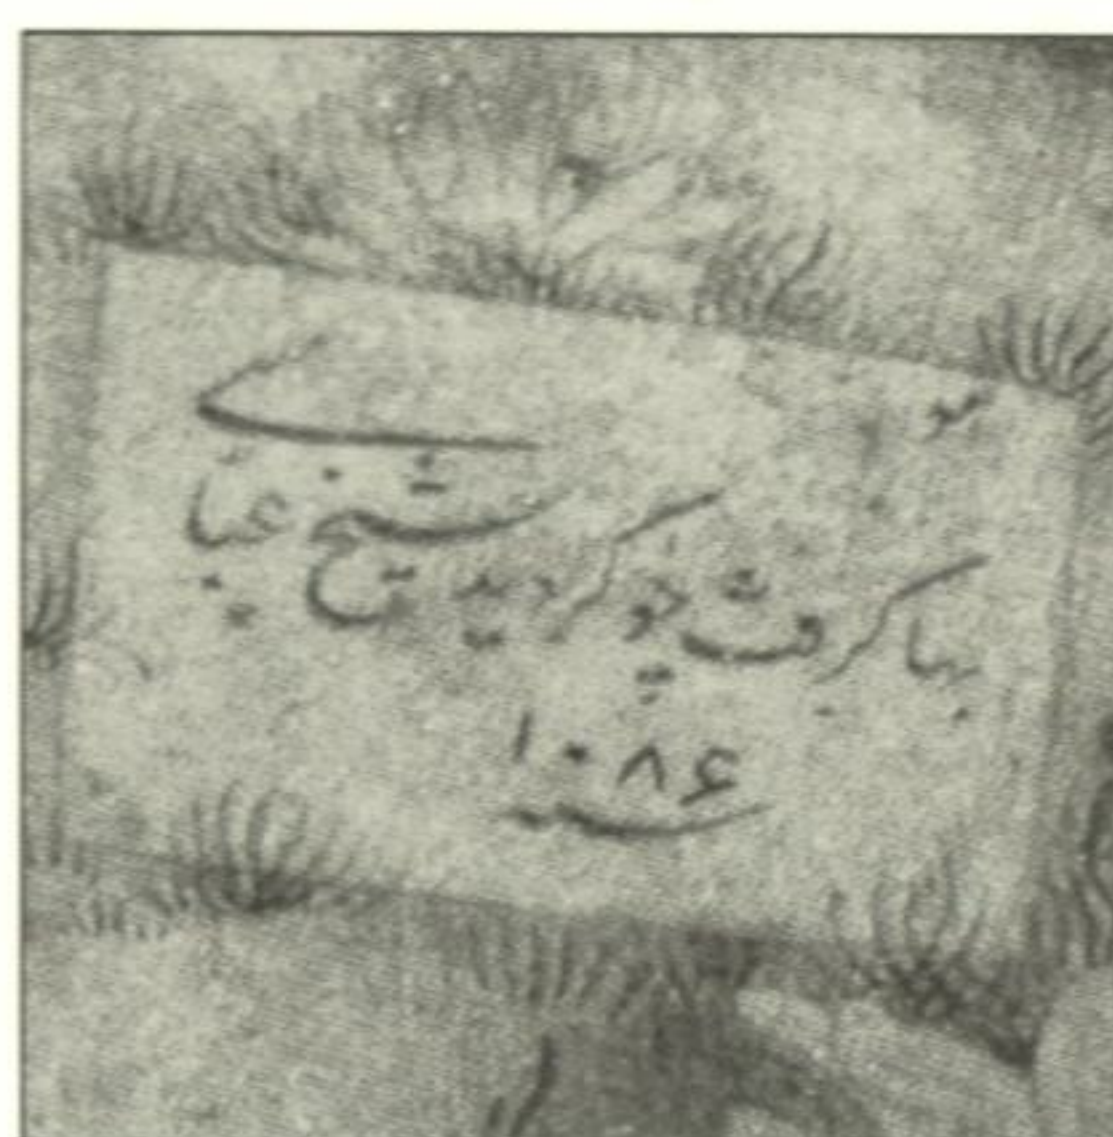 بها گرفت چو گردید شیخ عباسی
۱۰۸۶